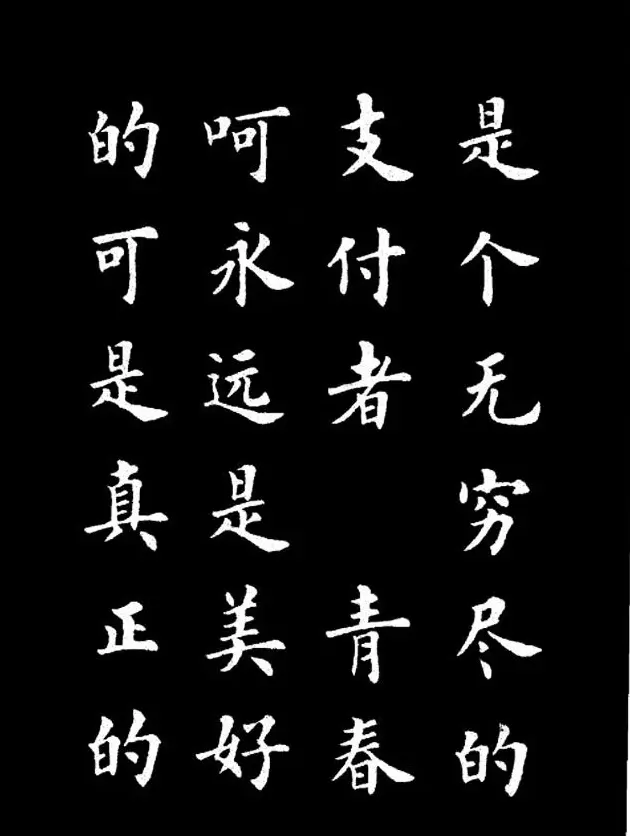 是个无穷尽的
支付者 青春
呵永远是美好
的可是真正的